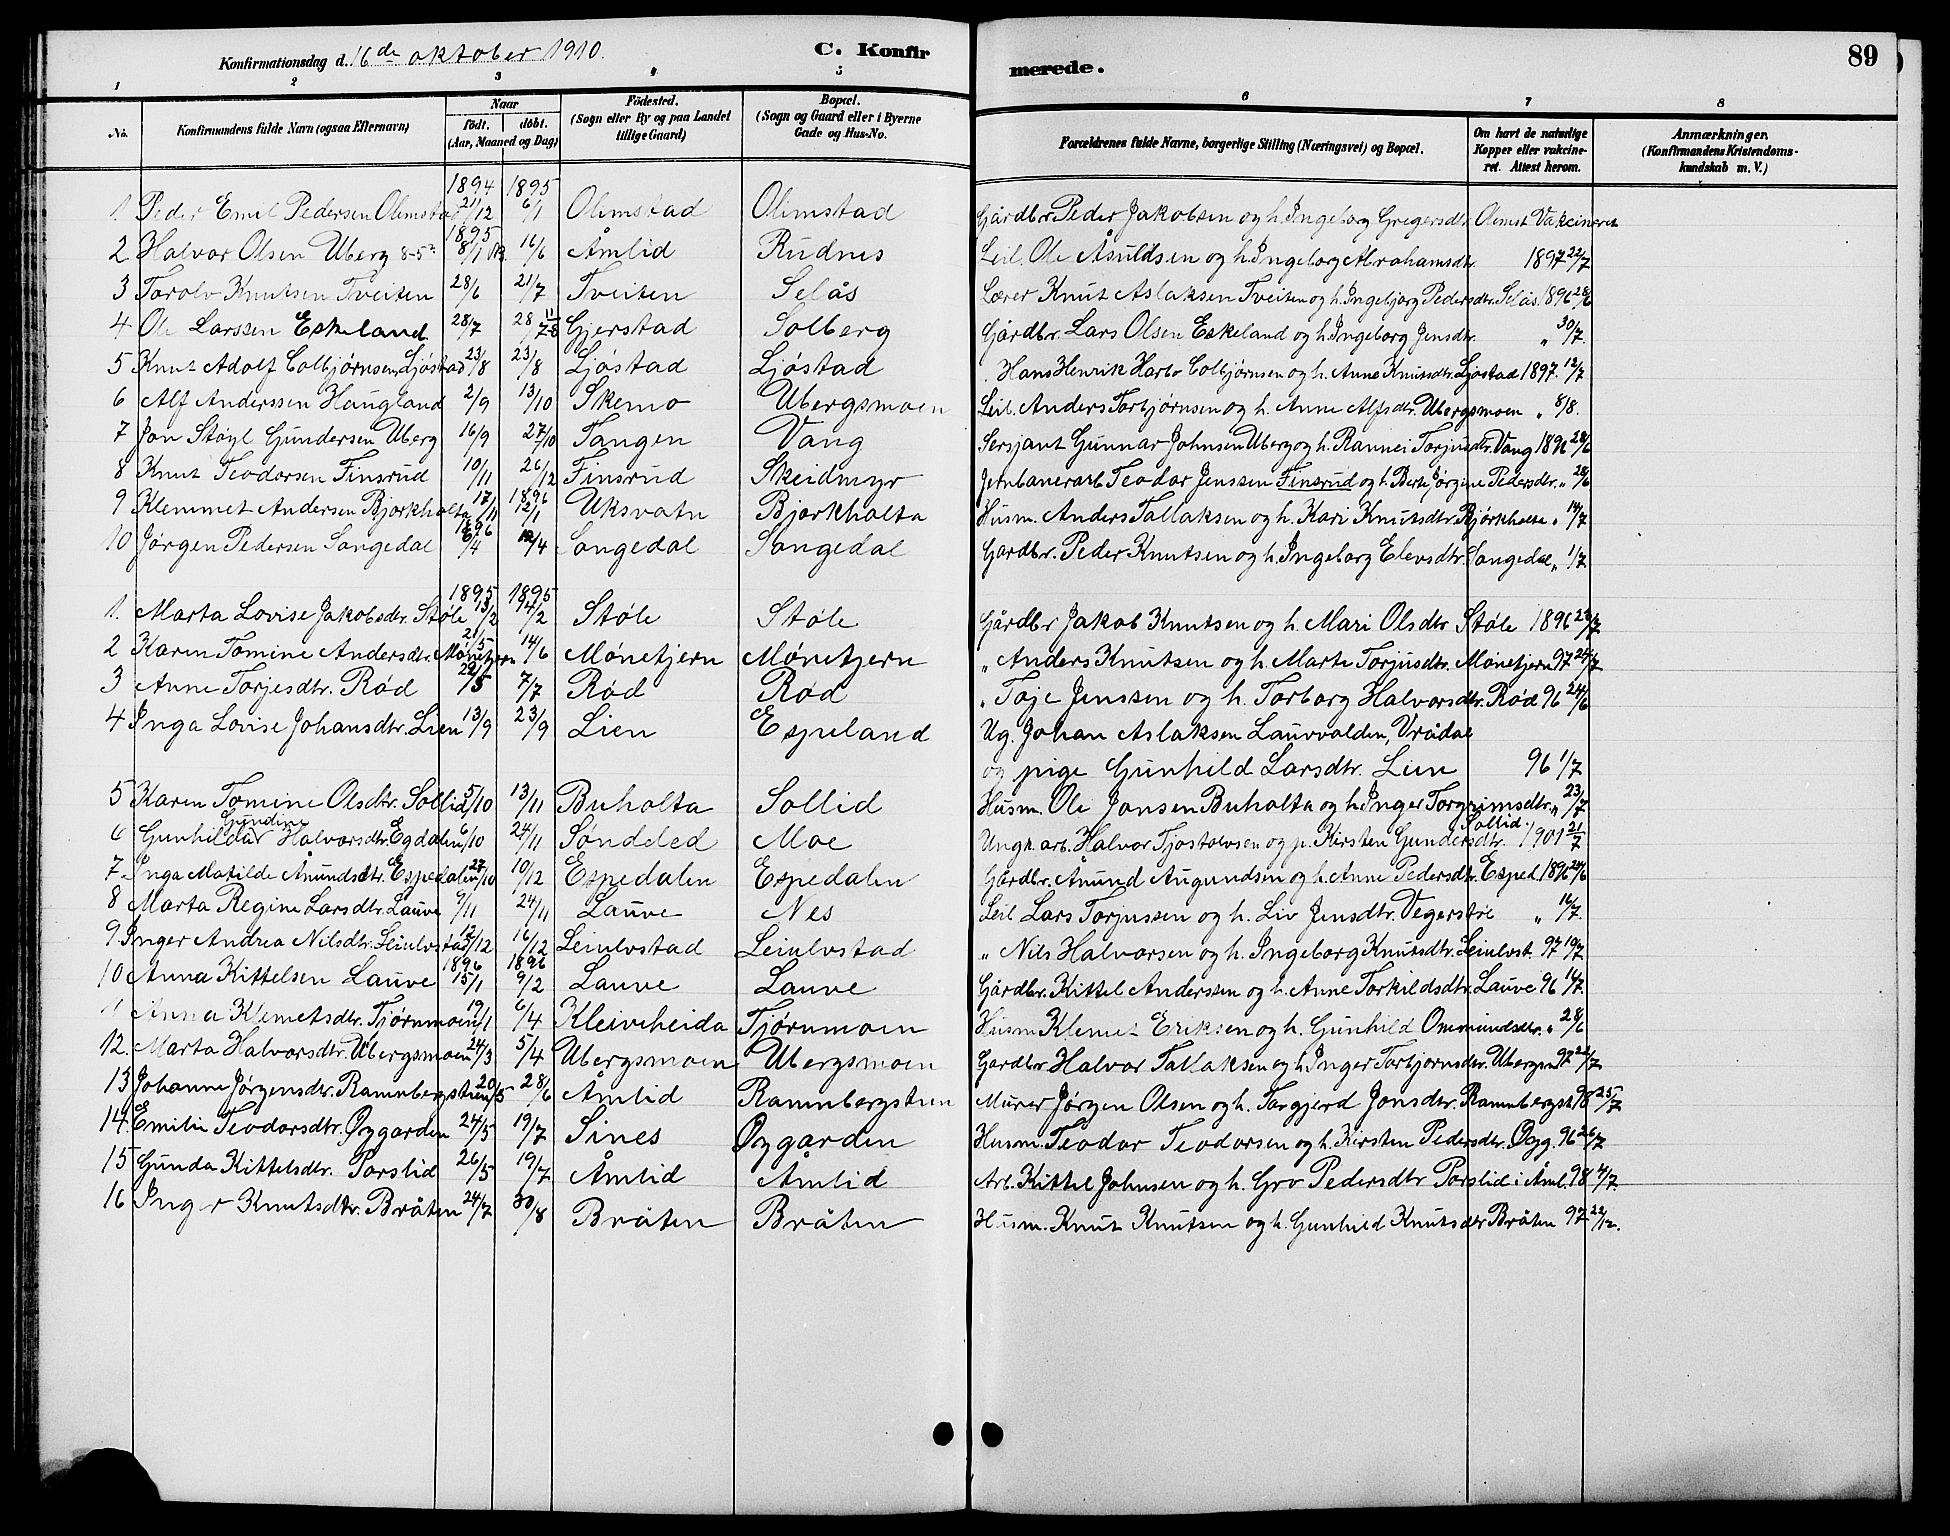 Konfirmationsdag d. 16de oktober 1910. C. Konfirmerede. 89
1 2 3 4 5 6 7 8
No. Konfirmandens fulde Navn (ogsaa Efternavn) Naar født. døbt. (Aar, Maaned og Dag) Fødested. (Sogn eller By og paa Landet tillige Gaard) Bopæl. (Sogn og Gaard eller i Byerne Gade og Hus-No. Forældrenes fulde Navne, borgerlige Stilling (Næringsvei) og Bopæl. Om havt de naturlige Kopper eller vakcineret. Attest herom. Anmærkninger. (Konfirmandens Kristendomskundskab m. V.)
1894 1895
1 Peder Emil Pedersen Olimstad 21/12 6/1 Olimstad Olimstad Gårdbr. Peder Jakobsen og h. Ingeborg Gregersdtr. Olimst Vakcineret
1895
2 Halvor Olsen Uberg 8/1 16/6 Åmlid Rudnes Leil. Ole Åsuldsen og h. Ingeborg Abrahamsdtr. 1897 22/7
3 Torolv Knutsen Tveiten 28/6 21/7 Tveiten Selås Lærer Knut Aslaksen Tveiten og h. Ingebjørg Pedersdtr. Selås. 1896 28/6
4 Ole Larssen Eskeland 28/7 28/7 Gjerstad Solberg Gårdbr. Lars Olsen Eskeland og h. Ingeborg Jensdtr. " 30/7.
5 Knut Adolf Colbjørnsen Ljøstad 23/8 23/8 Ljøstad Ljøstad Hans Henrik Harbo Colbjørnsen og h. Anne Knutsdtr. Ljøstad 1897. 12/7
6 Alf Anderssen Haugland 2/9 13/10 Skemo Ubergsmoen Leil. Anders Torbjørnsen og h. Anne Alfsdtr. Ubergsmoen " 8/8.
7 Jon Støyl Gundersen Uberg 16/9 27/10 Tangen Vang Sersjant Gunnar Johnsen Uberg og h. Rannei Torjusdtr. Vang 1896 28/6
8 Knut Teodorsen Finsrud 10/11 26/12 Finsrud Skeidmyr Jernbanearb Teodor Jenssen Finsrud og h. Berte Jørgine Pedersdtr. " 28/6
1896
9 Klemmet Andersen Bjørkholta 17/11 12/1 Uksvatn Bjørkholta Husm. Anders Tallaksen og h. Kari Knutsdtr. Bjørkholta " 14/7
1896
10 Jørgen Pedersen Songedal 6/4 /4 Songedal Songedal Gardbr. Peder Knutsen og h. Ingeborg Elevsdtr. Songedal " 1/7
1895 1895
1. Marta Lovise Jakobsdtr. Støle 13/2 14/2 Støle Støle Gårdbr Jakob Knutsen og h. Mari Olsdtr Støle 1896 23/7
2 Karen Tomine Andersdtr. Mønetjern 21/5 14/6 Mønetjern Mønetjern " Anders Knutsen og h. Marte Torjusdtr. Mønetjern 97 24/7
3 Anne Torjesdtr. Rød 22/5 7/7 Rød Rød " Toje Jenssen og h. Torborg Halvorsdtr. Rød 96 24/6
4 Inga Lovise Johansdtr. Lien 13/9 23/9 Lien Espeland Ug. Johan Aslaksen Lauvvalden, Vrådal
og pige Gunhild Larsdtr. Lien 96 1/7
5 Karen Tomine Olsdtr. Sollid 5/10 13/11 Buholta Sollid Husm. Ole Jonsen Buholta og h. Inger Torgrimsdtr. " 23/7
Gundine Sollid
6 Gunhilda Halvorsdtr. Egdalen 6/10 24/11 Søndeled Moe Ungk. arb. Halvor Tjostolvsen og p. Kirsten Gundersdtr. 1901 21/7
7 Inga Matilde Ånundsdtr. Espedalen 27/10 10/12 Espedalen Espedalen Gårdbr. Ånund Augundsen og h. Anne Pedersdtr. Esped. 1896 24/6
8 Marta Regine Larsdtr. Lauve 9/11 24/11 Lauve Nes Leil Lars Torjussen og h. Liv Jensdtr. Vegerstøe " 16/7.
9 Inger Andrea Nilsdtr. Leiulvstad 12/12 16/12 Leiulvstad Leiulvstad " Nils Halvorsen og h. Ingeborg Knutsdtr. Leiulvst. 97 19/7.
1896 1896
10 Anna Kittelsen Lauve 15/1 9/2 Lauve Lauve Gårdbr. Kittel Anderssen og h. Anne Torkildsdtr. Lauve 96 16/7.
11 Anna Klemetsdtr. Tjørnmoen 19/1 6/4 Kleivheida Tjørnmoen Husm Klemet Eriksen og h. Gunhild Ommundsdtr. " 28/6
12. Marta Halvorsdtr. Ubergsmoen 24/3 5/4 Ubergsmoen Ubergsmoen Gardbr. Halvor Tallaksen og h. Inger Torbjørnsdtr. Ubergsm 97 22/7
13 Johanne Jørgensdtr. Ramnbergstien 20/5 28/6 Åmlid Ramnbergstien Murer Jørgen Olsen og h. Torgjerd Jonsdtr. Ramnbergst. 98 25/7
14. Emilie Teodorsdtr. Øygarden 24/5 19/7 Sines Øygarden Husm. Teodor Teodorsen og h. Kirsten Pedersdtr. Øyg. 96 26/7
15 Gunda Kittelsdtr. Porslid 26/5 19/7 Åmlid Åmlid Arb. Kittel Johnsen og h. Gro Pedersdtr Porslid i Åml. 98 4/7.
16 Inger Knutsdtr. Bråten 24/7 30/8 Bråten Bråten Husm. Knut Knutsen og h. Gunhild Knutsdtr Bråten 97 22/12.